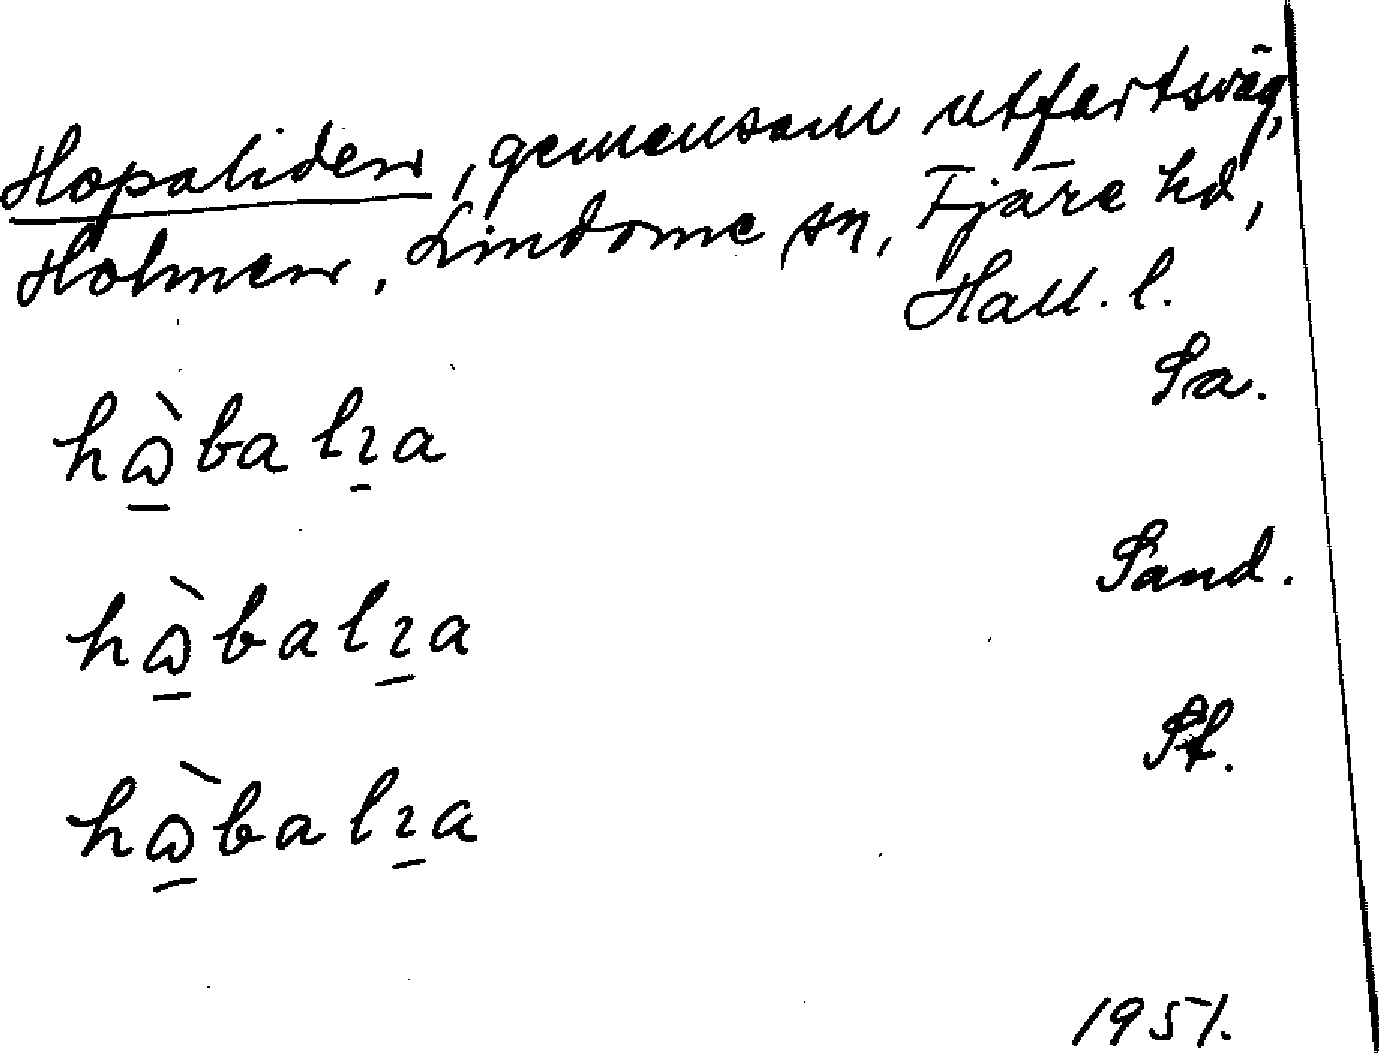 Hopaliden, gemensam utfartsväg,
Holmen, Lindome sn, Fjäre hd,
Hall. l.
Sa.
hὼ̱balɿ̱a
Sand.
hὼ̱balɿ̱a
St.
hὼ̱balɿ̱a
1951.